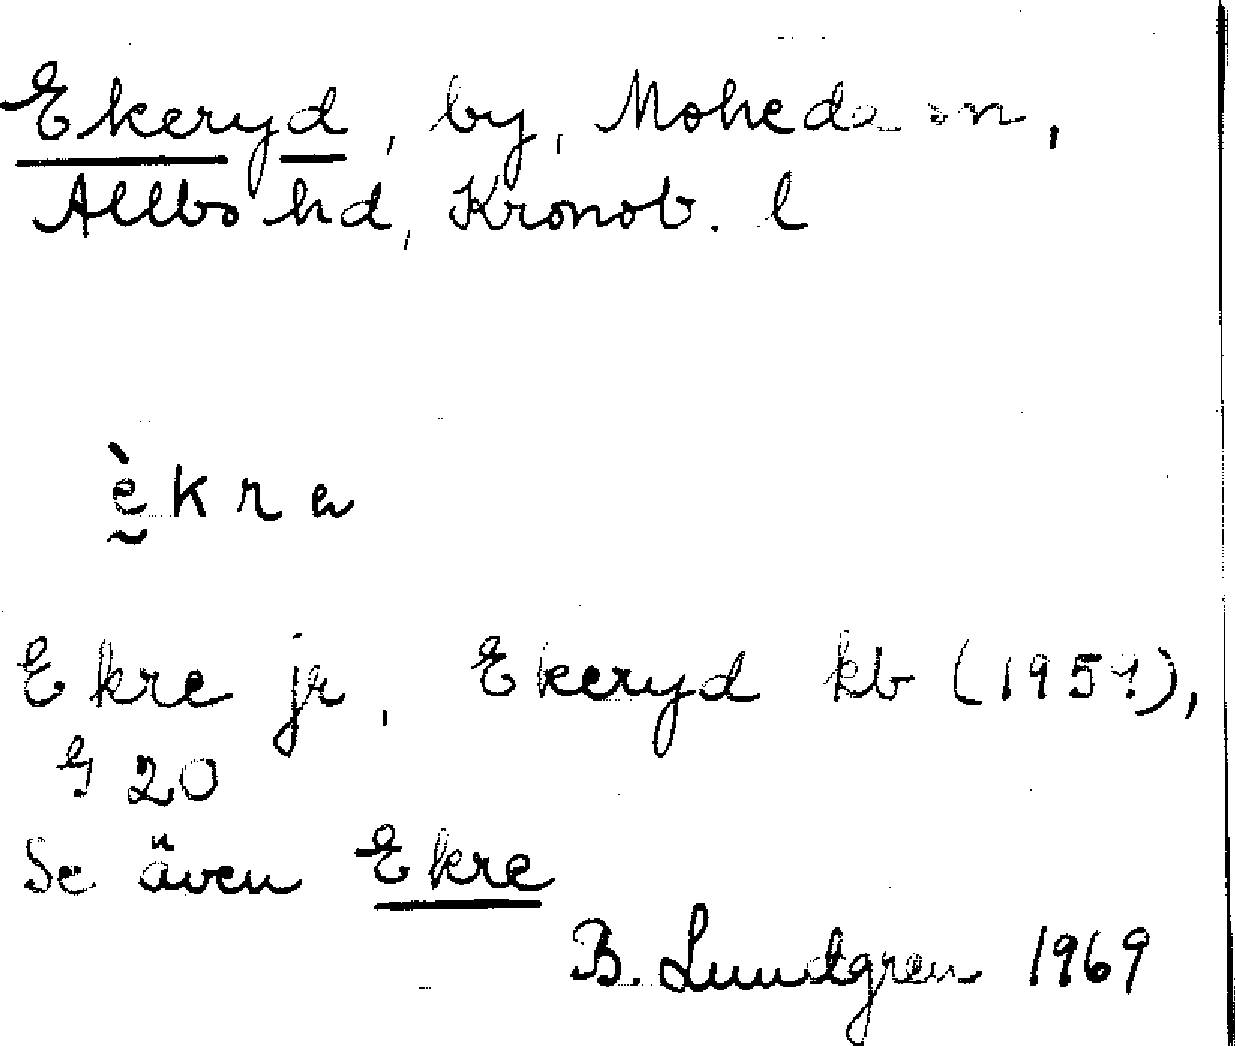 Ekeryd, by, Moheda sn,
Allbo hd, Kronob. l
èkra
Ekre jr, Ekeryd kb (1951),
G 20
Se även Ekre
B. Lundgren 1969